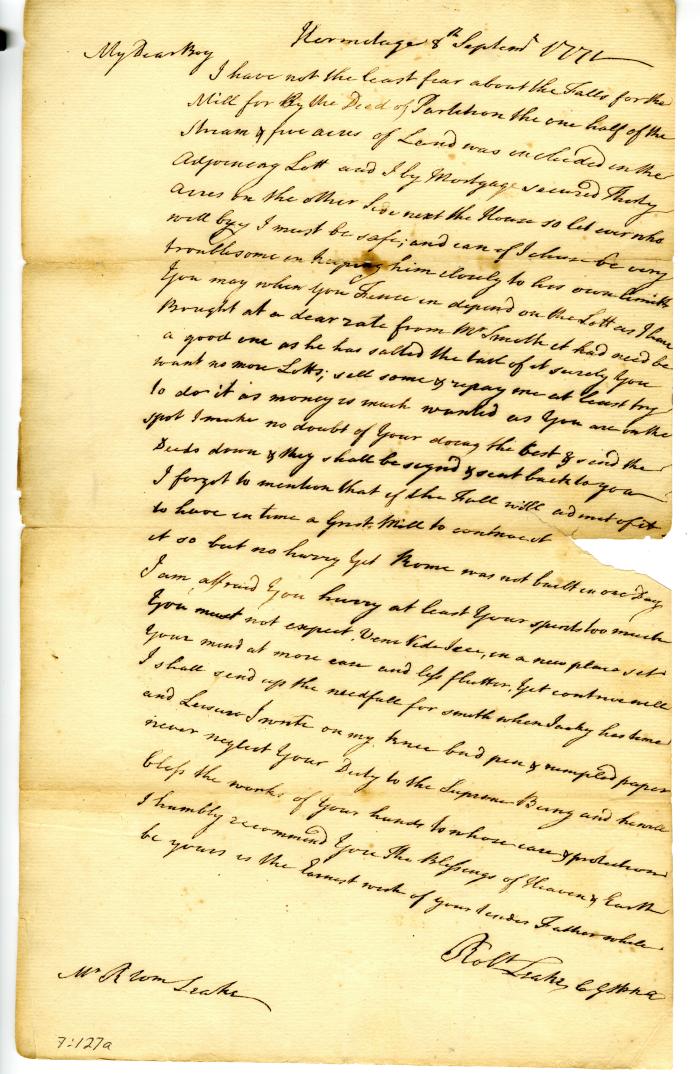 Hermitage 8th Septemr 1772
My Dear Boy
I have not the least fear about the Falls for the
Mill for By the Deed of Partition the one half of the
Stream & five acres of Land was included in the
Adjoining Lott and I by Mortgage secured Thirty
Acres on the other Side next the House so let ever who
will byy I must be safe; and can if I chuse be very
troublesome in keeping him closely to his own limitts
You may when You Fence in depend on the Lott as I have
Bought at a dear rate from Mr Smith it had need be
a good one as he has salted the last of it surely You
want no more Lotts; sell some & repay me at least try
to do it as money is much wanted as You are on the
spot I make no doubt of Your doing the best & send the
Deeds down & they shall be signd & sent back to you
I forgot to mention that if the Fall will admit of it
to have in time a Grist Mill to contrive it
it so but no hurry Yet Rome was not built in one Day
I am affraid You hurry at least Your spirits too much
You must not expect Veni Vide Icce, in a new place set
Your mind at more ease and less flutter, Yet contrive well
I shall send up the needfull for smith when Jacky has time
and Leisure I wrote on my knee bad pen & rumpled paper
never neglect Your Duty to the Supreme Being and he will
bless the works of Your hands to whose care & protection
I humbly recommend You The Blessings of Heaven & Earth
be yours is the Earnest wish of your tender Father while
Robt Leake
Mr R Wm Leake
7:127a